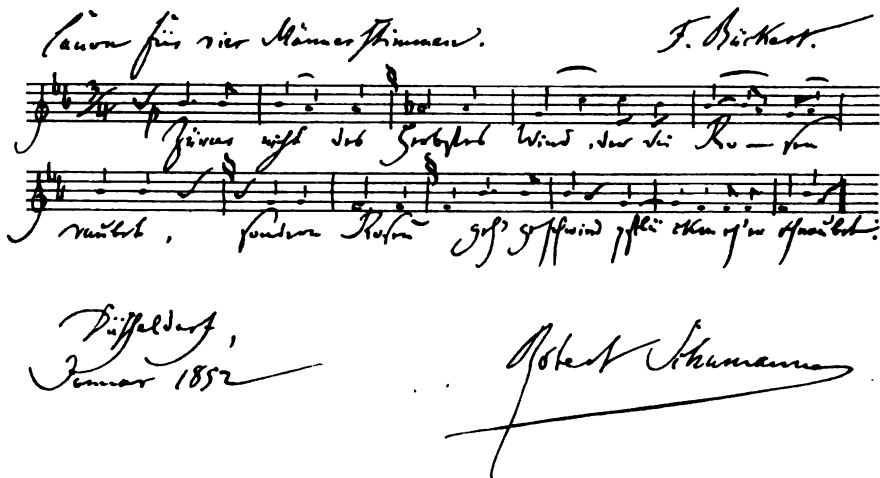 Canon für vier Männerstimmen. F. Rückert.
3/4
Zürne nicht des Herbstes Wind, der die Ro—sen
raubet, sondern Rosen geh' geschwind pflü cken eh' er
Düsseldorf,
Januar 1852
Robert Schumann